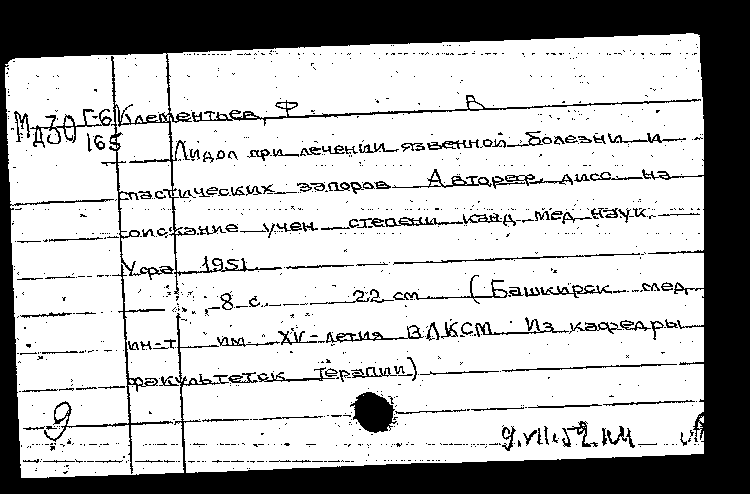 Мд30 Г-6 Клементьев, Ф. В
165
Лидол при лечении язвенной болезни и
спастических запоров. Автореф. дисс. на
соискание учен. степени канд. мед. наук.
Уфа, 1951.
8 с. 22 cm. (Башкирск. мед.
ин-т им. XV-летия ВЛКСМ. Из кафедры
факультетск. терапии)
9
9.VII.52.